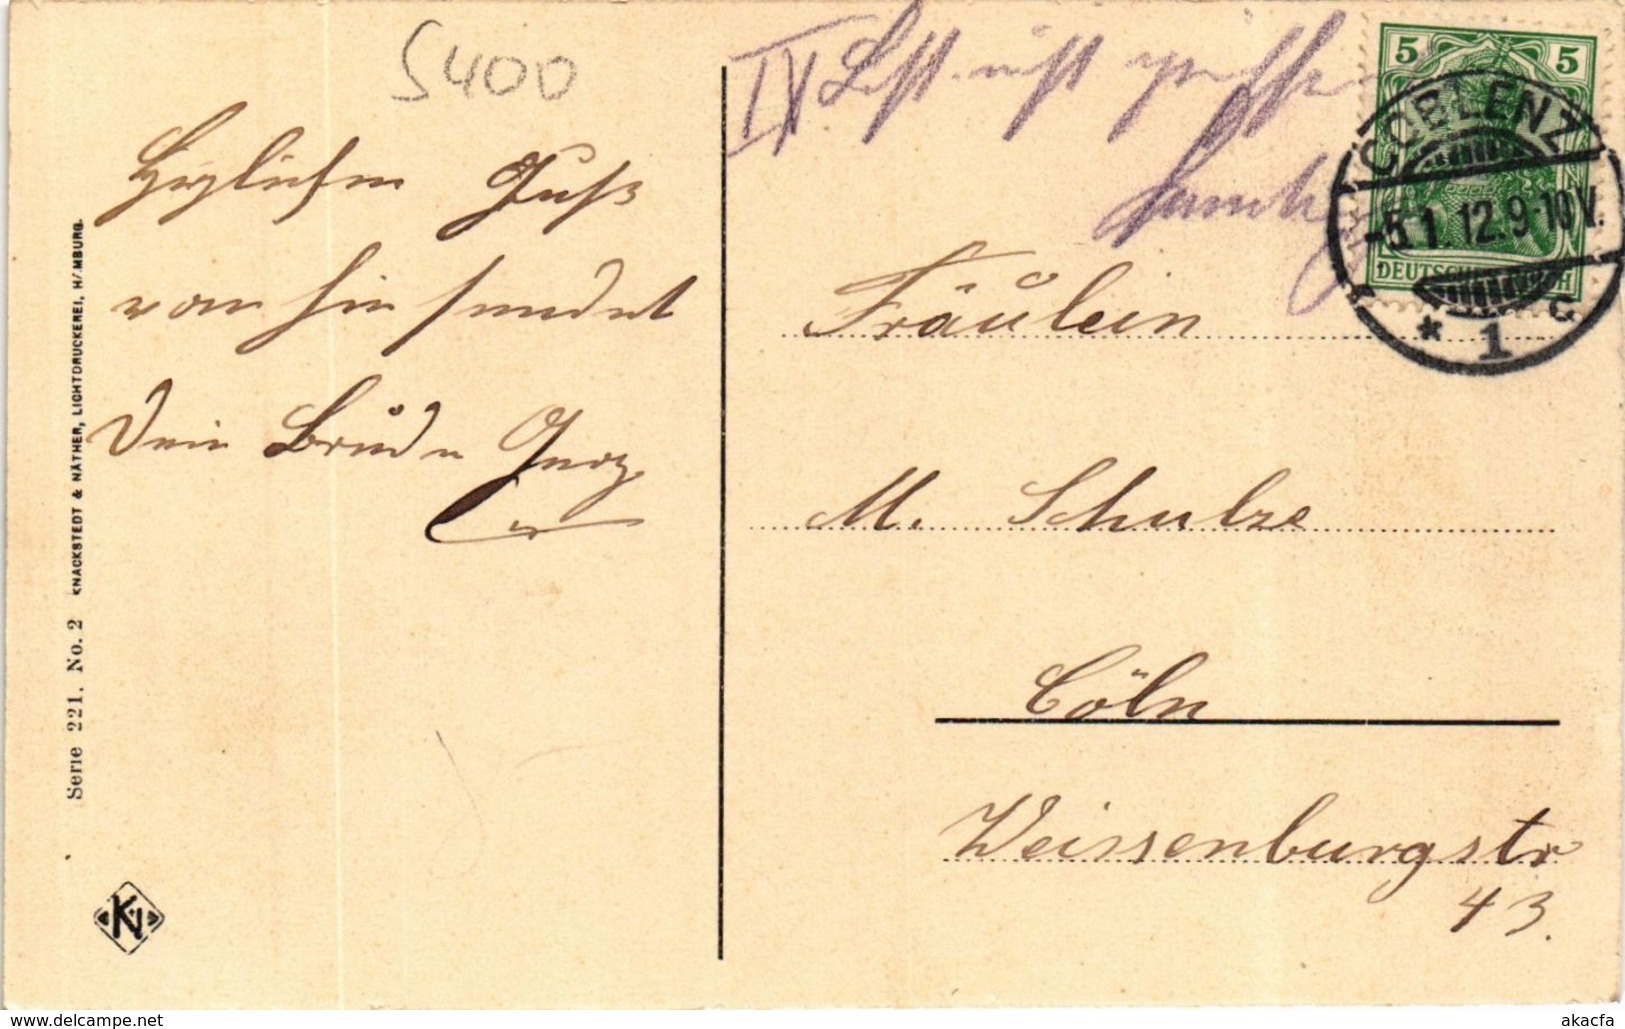 S400
Herzlichen Gruß
von hier sendet
Dein Bruder
Fräulein
M. Schulze
Cöln
Weissenburgstr
43.
5 5
DEUTSCHES REICH
COBLENZ
-5.1.12.9-10V.
* 1 c
Serie 221. No. 2 KNACKSTEDT & NÄTHER, LICHTDRUCKEREI, HAMBURG.
KN
www.delcampe.net
akacfa